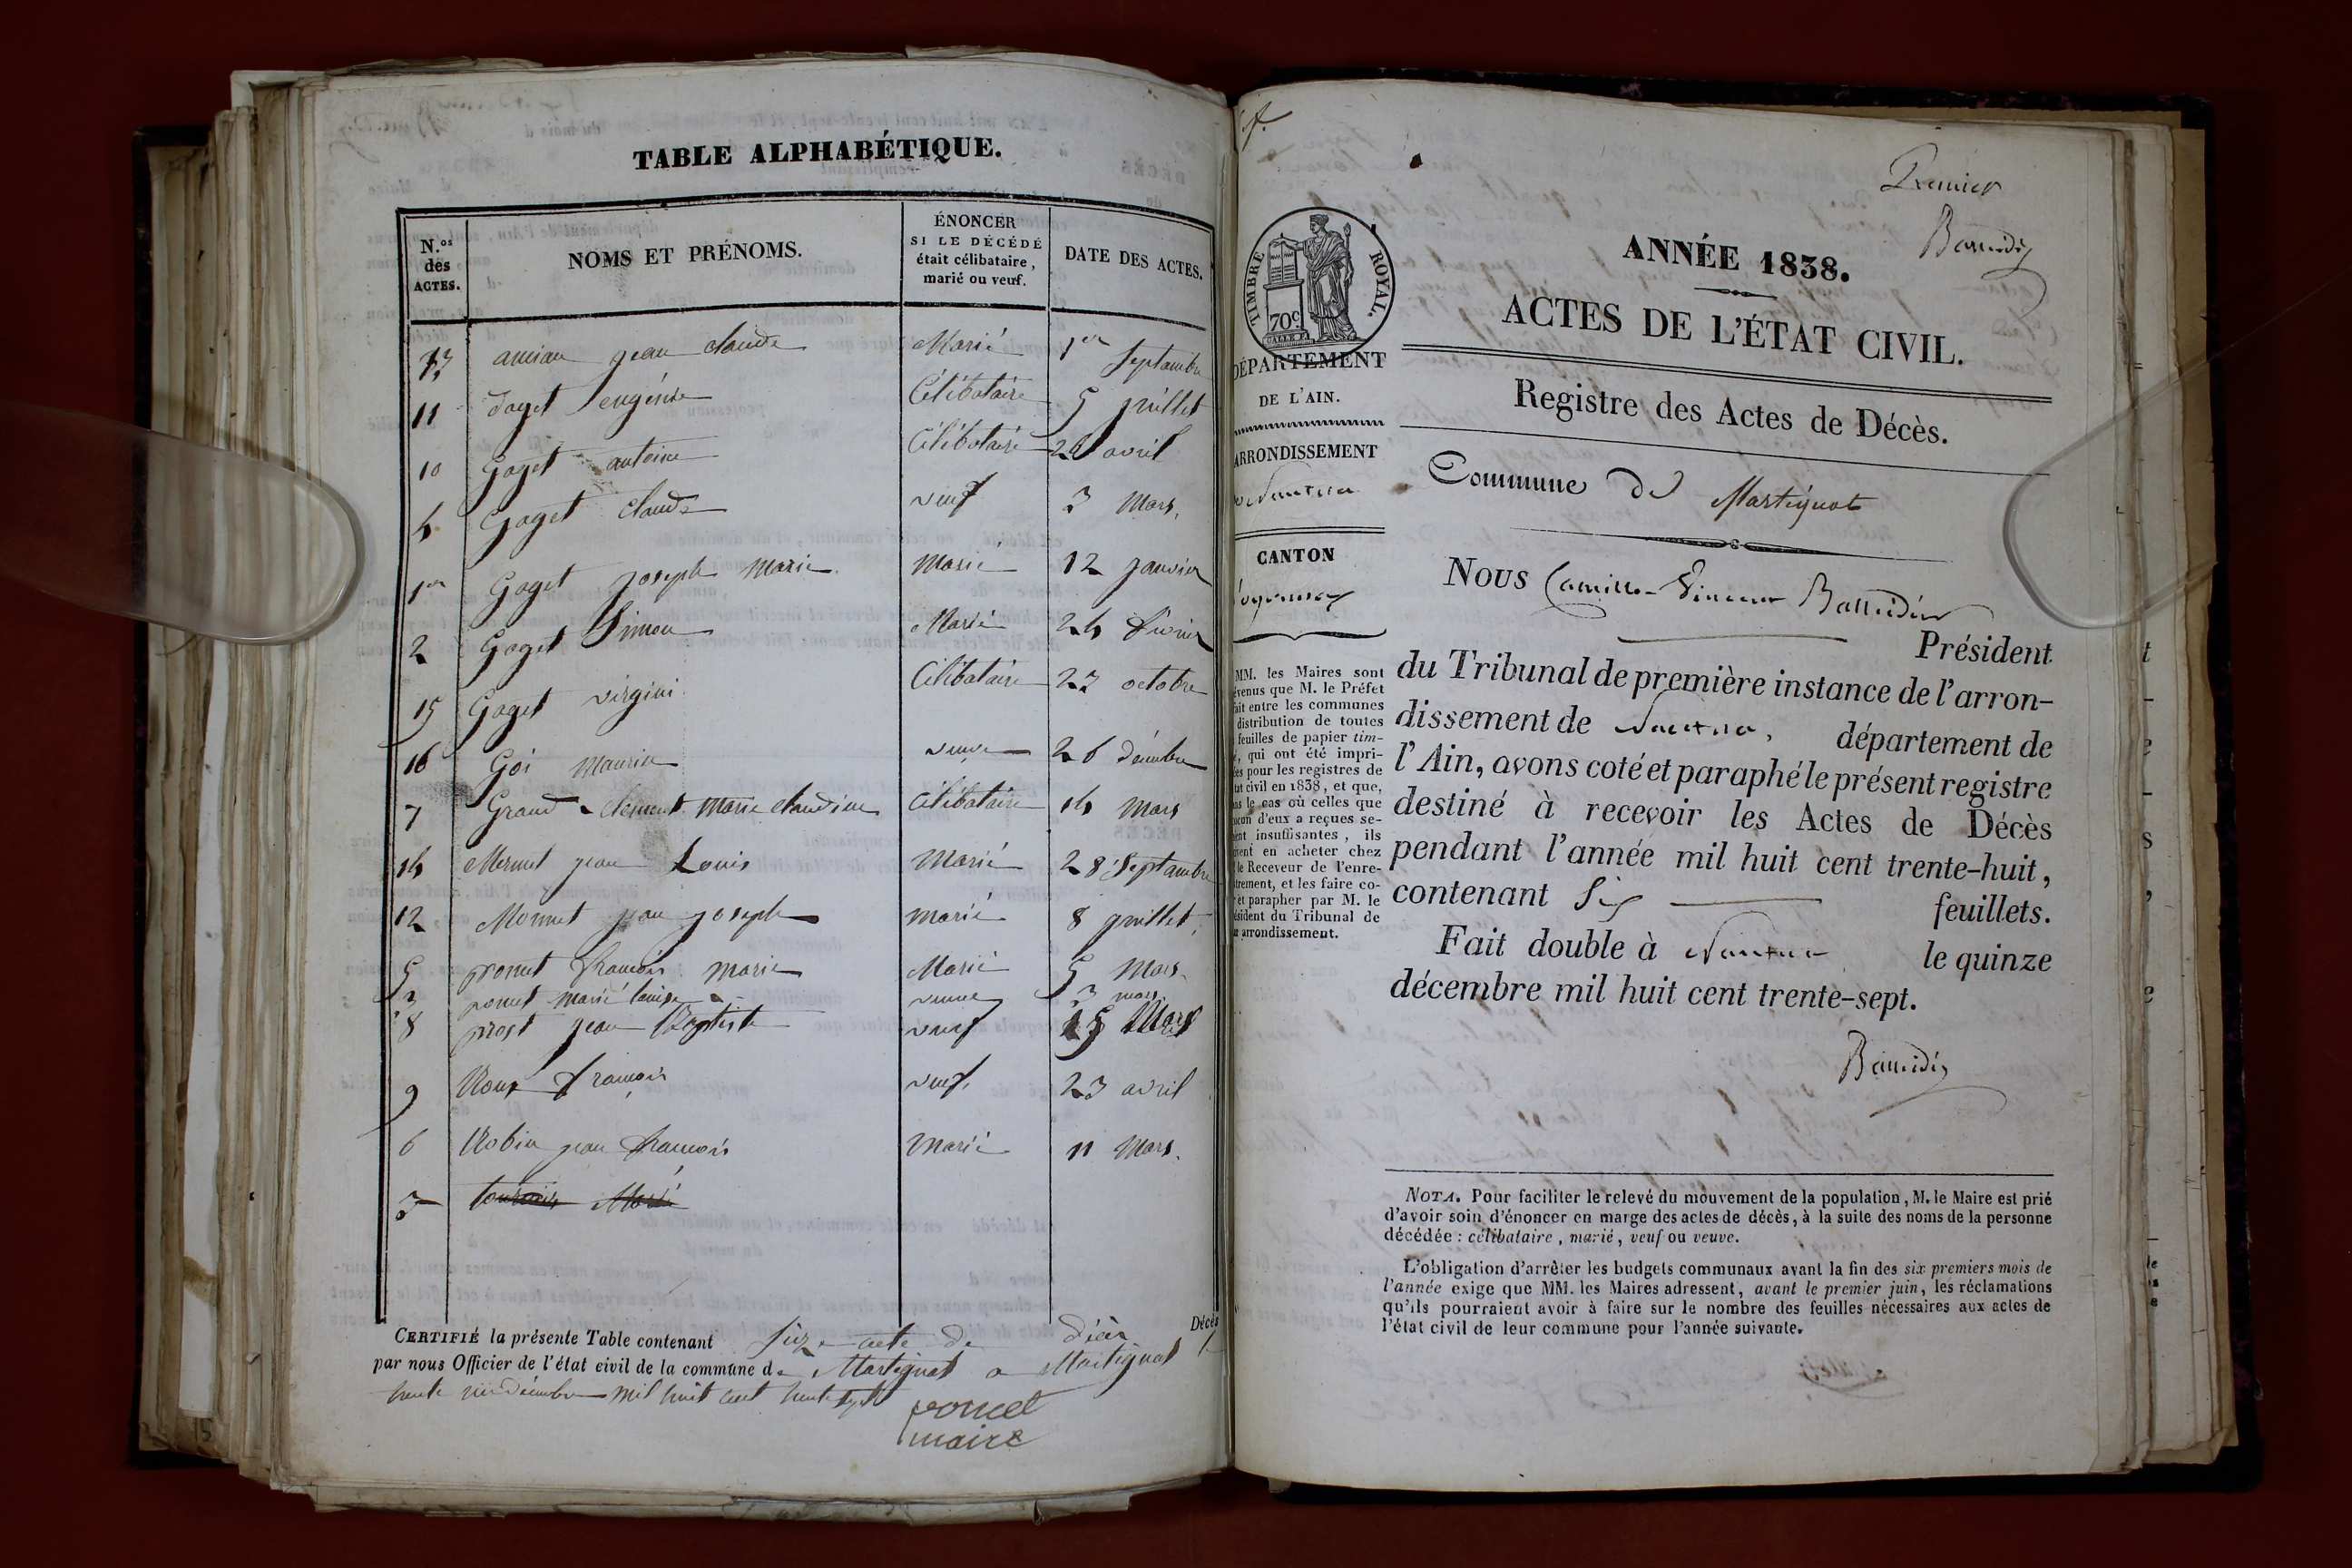 TABLE ALPHABÉTIQUE.
N.os des ACTES.
NOMS ET PRÉNOMS.
ÉNONCER SI LE DÉCÉDÉ était célibataire, marié ou veuf.
DATE DES ACTES.
13 jean claude Marié 1er Septambre
11 eugénie Célibataire 5 juillet
10 Goget antoine Célibataire avril
4 Goget claude veuf 3 Mars,
1er Goget joseph marie marié 12 janvier
2 Goget Simon Marié 24 février
15 Goget virgini Célibataire 23 octobre
16 Goi veuve 26 décembre
7 Grand Clément Marie claudine Célibataire 14 Mars
14 Mermet jean Louis Marié 28 Septambre
12 Monnet jean joseph marié 8 juillet,
5 françois marie Marié 5 Mars
3 marie louise veuve 3 mars
8 prost jean Baptiste veuf 15 Mars
9 Roux françois veuf, 23 avril
6 Robin jean francois marié 11 Mars.
3
CERTIFIÉ la présente Table contenant Seize acte de décès Décès
par nous Officier de l'état civil de la commune de Martignat a Martignat le
trente un décembre mil huit cent trente sept
poncet
maire
Premier
Barridi
TIMBRE ROYAL.
70c
ANNÉE 1838.
ACTES DE L'ÉTAT CIVIL.
Registre des Actes de Décès.
DÉPARTEMENT
DE L'AIN.
ARRONDISSEMENT
Nantua
CANTON
MM. les Maires sont
évenus que M. le Préfet
ait entre les communes
distribution de toutes
feuilles de papier tim-
é, qui ont été impri-
ées pour les registres de
tat civil en 1838, et que,
ns le cas où celles que
acun d'eux a reçues se-
ient insuffisantes, ils
vent en acheter chez
le Receveur de l'enre-
trement, et les faire co-
r et parapher par M. le
ésident du Tribunal de
arrondissement.
Commune de Martignat
NOUS Camille-Vincent
Président
du Tribunal de première instance de l'arron-
dissement de Nantua, département de
l'Ain, avons coté et paraphé le présent registre
destiné à recevoir les Actes de Décès
pendant l'année mil huit cent trente-huit,
contenant Six feuillets.
Fait double à Nantua le quinze
décembre mil huit cent trente-sept.
NOTA. Pour faciliter le relevé du mouvement de la population, M. le Maire est prié
d'avoir soin d'énoncer en marge des actes de décès, à la suite des noms de la personne
décédée : célibataire, marié, veuf ou veuve.
L'obligation d'arrêter les budgets communaux avant la fin des six premiers mois de
l'année exige que MM. les Maires adressent, avant le premier juin, les réclamations
qu'ils pourraient avoir à faire sur le nombre des feuilles nécessaires aux actes de
l'état civil de leur commune pour l'année suivante.